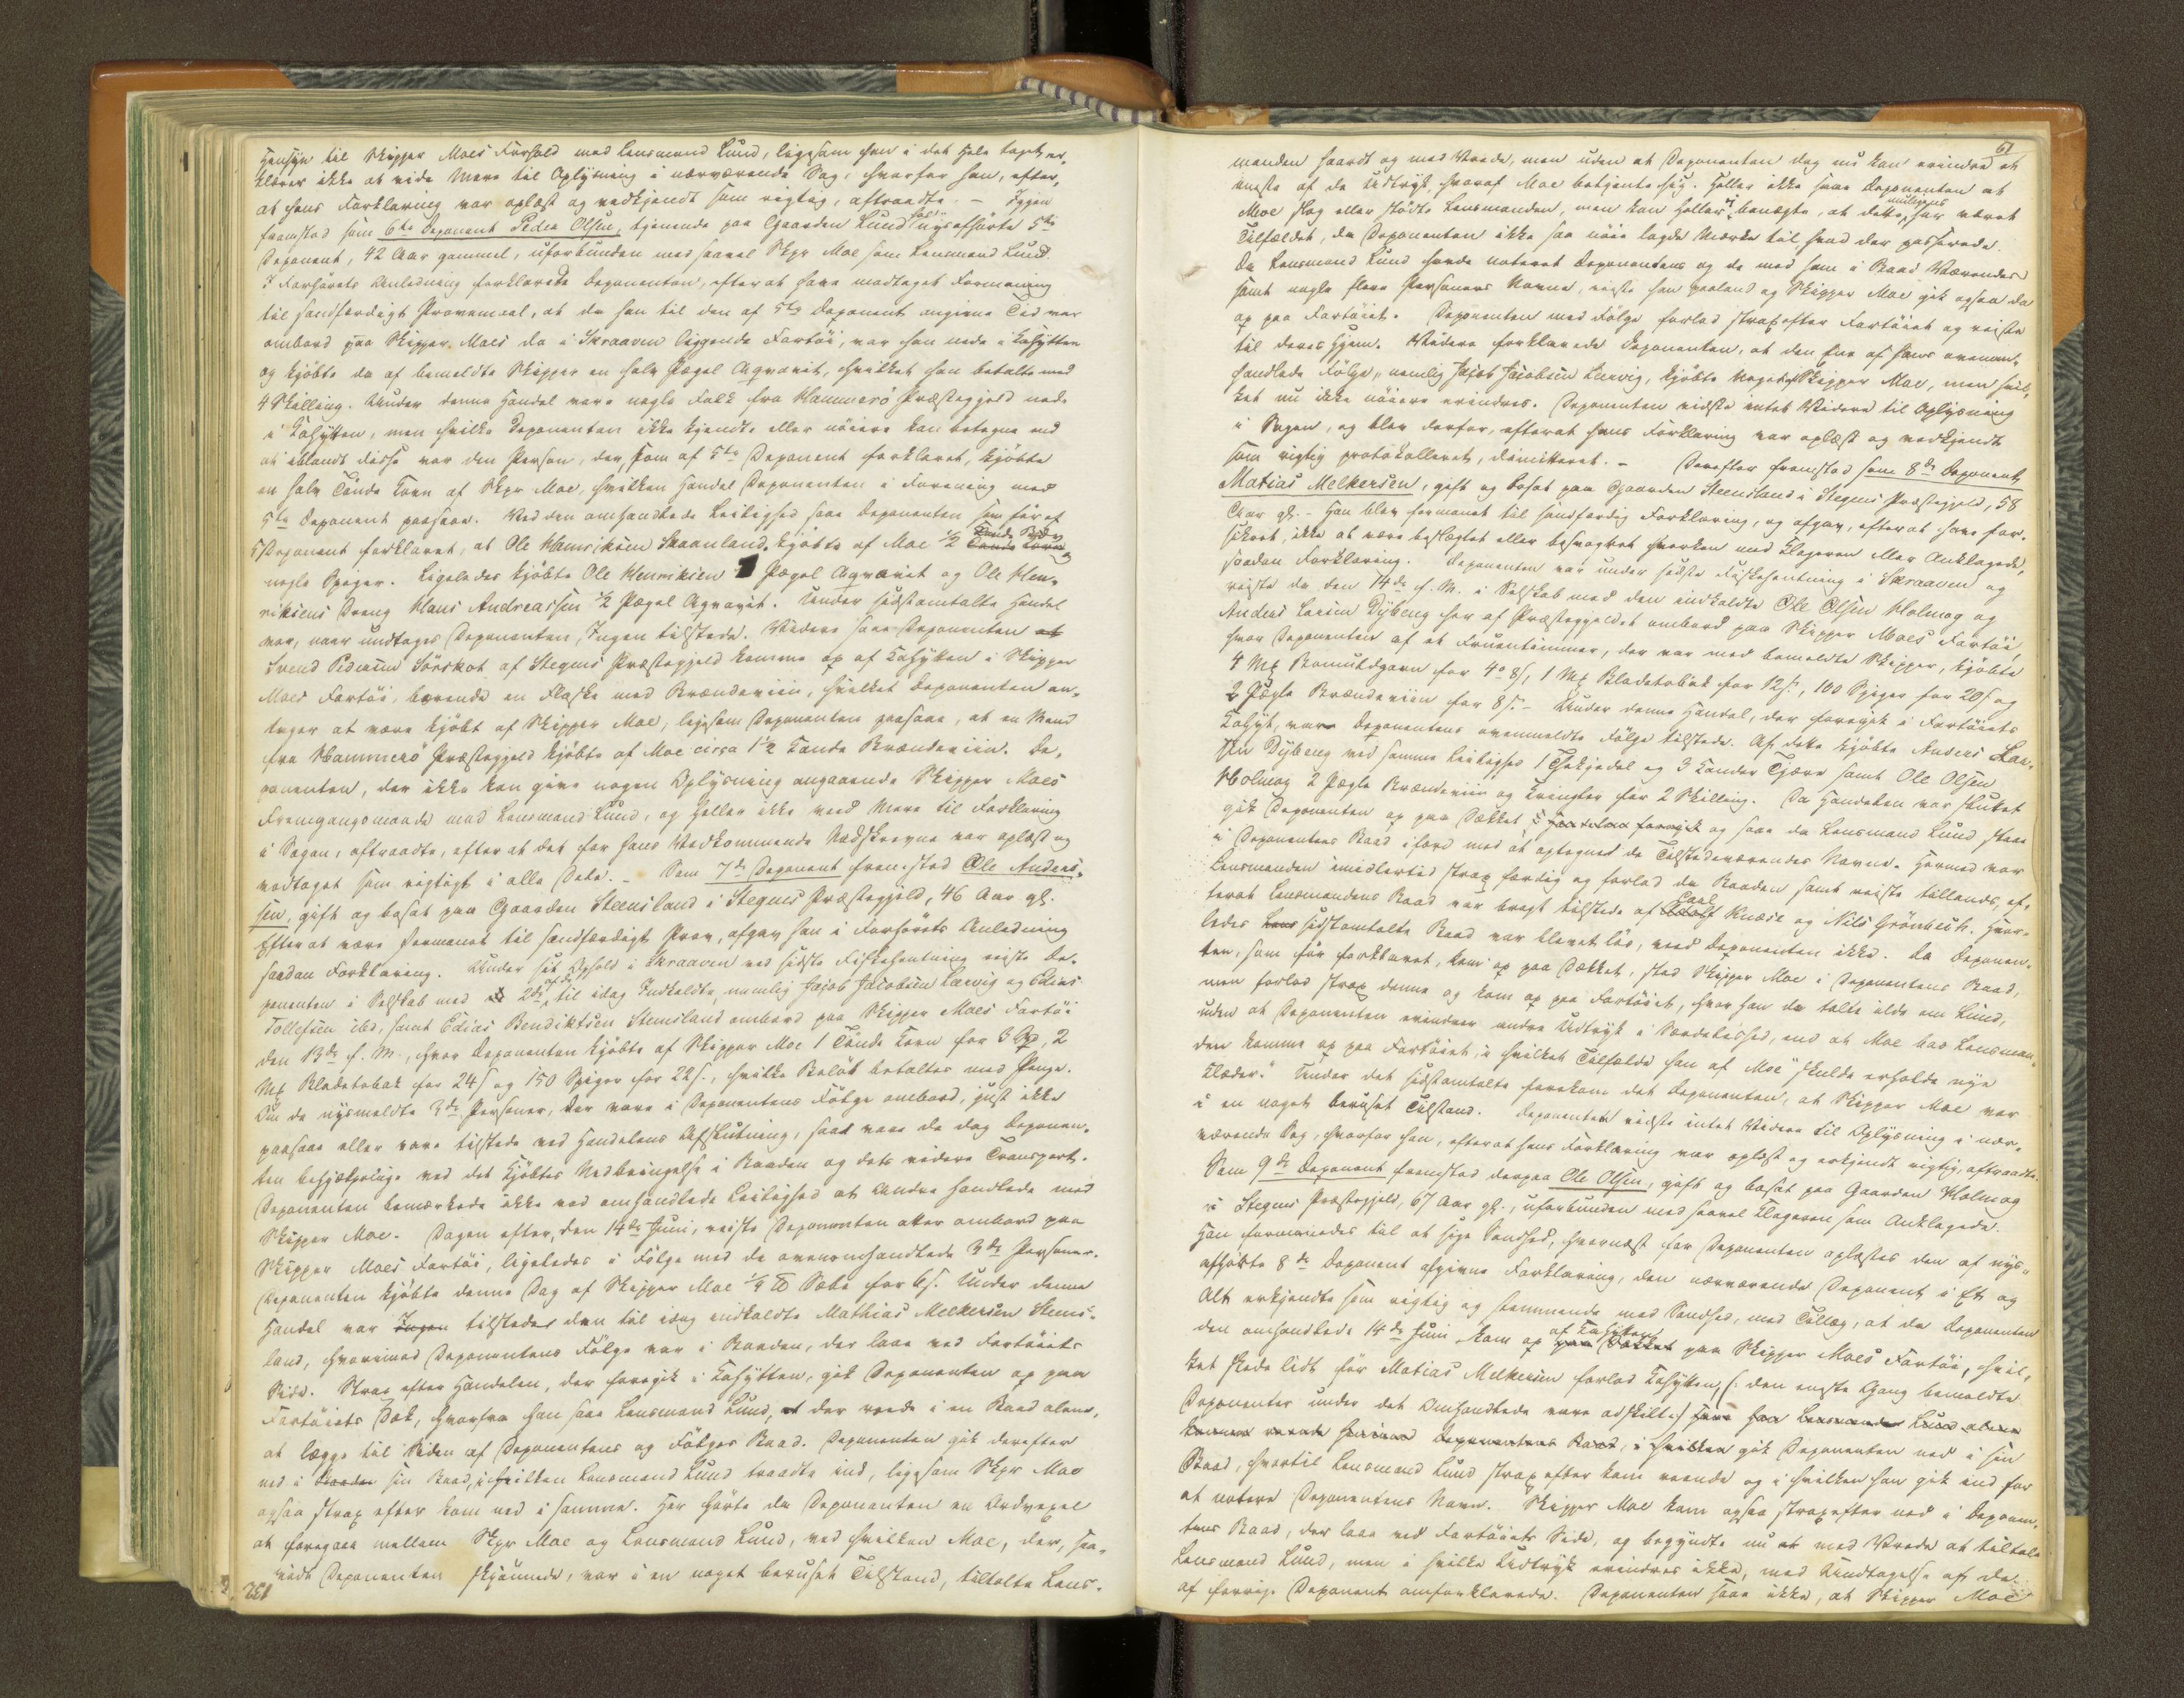 Hensyn til Skipper Moes Forhold med Lensmand Lund, ligesom han i det Hele taget er,
klærer ikke at vide Mere til Oplysning i nærværende Sag; hvorfor han, efter,
at hans Forklaring var oplæst og vedkjendt som rigtig, aftraadte. – Igjen
fremstod som 6te Deponent Peder Olsen, tjenende paa Gaarden Lund hos nysafhørte 5te
Deponent, 42 Aar gammel, uforbunden med saavel Skpr Moe som Lensmand Lund.
I Forhørets Anledning forklarede Deponenten, efter at have modtaget Formaning
til sandfærdigt Provemaal, at da han til den af 5te Deponent angivne Tid var
ombord paa Skipper Moes da i Skraaven liggende Fartøi, var han nede i Kahytten
og kjøbte da af bemeldte Skipper en halv Pægel Aqvavit, hvilket han betalte med
4 Skilling. Under denne Handel vare nogle Folk fra Hammerö Præstegjeld nede
i Kahytten, men hvilke Deponenten ikke kjendte eller nøiere kan betegne end
at iblandt disse var den Person, der, som af 5te Deponent forklaret, kjøbte
en halv Tønde Korn af Skpr Moe, hvilken Handel Deponenten i Forening med
5te Deponent paasaae. Ved den omhandlede Leilighed saae Deponenten som før af
5 Deponent forklaret, at Ole Henriksen Skaanland kjøbte af Moe 1/2 Tønde Korn
nogle Spiger. Ligeledes kjøbte Ole Henriksen 1 Pægel Aqvavit og Ole Hen,
riksens Dreng Hans Andreassen 1/2 Pægel Aqvavit. Under sidstomtalte Handel
var, naar undtages Deponenten, Ingen tilstede. Videre saae Deponenten at
Svend Pedersen Sörskot af Stegens Præstegjeld komme op af Kahytten i Skipper
Moes Fartøi, bærende en Flaske med Brændeviin, hvilket Deponenten an,
tager at være kjøbt af Skipper Moe, ligesom Deponenten paasaae, at en Mand
fra Hammerö Præstegjeld kjøbte af Moe circa 1 1/2 Kande Brændeviin. De,
ponenten, der ikke kan give nogen Oplysning angaaende Skipper Moes
Fremgangsmaade mod Lensmand Lund, og heller ikke veed Mere til Forklaring
i Sagen, aftraadte, efter at det for hans Vedkommende Nedskrevne var oplæst og
vedtaget som rigtigt i alle Dele. – Som 7de Deponent fremstod Ole Anders,
sen, gift og bosat paa Gaarden Steensland i Stegens Præstegjeld, 46 Aar gl.
Efter at være formanet til sandfærdigt Prov, afgav han i Forhørets Anledning
saadan Forklaring. Under sit Ophold i Skraaven ved sidste Fiskehentning reiste De,
ponenten i Selskab med 2de af de til idag Indkaldte, nemlig Jacob Jacobsen Leervig og Elias
Tollefsen ibd, samt Elias Bendiktsen Stensland ombord paa Skipper Moes Fartøi
den 13de f. M., hvor Deponenten kjøbte af Skipper Moe 1 Tønde Korn for 3 Spd, 2
Mk Bladetobak for 24 s og 150 Spiger for 22 s., hvilke Beløb betaltes med Penge.
Om de nysmeldte 3de Personer, der vare i Deponentens Følge ombord, just ikke
paasaae eller vare tilstede ved Handelens Afslutning, saa vare de dog Deponen,
ten behjælpelige ved det Kjøbtes Nedbringelse i Baaden og dets videre Transport.
Deponenten bemærkede ikke ved omhandlede Leilighed at Andre handlede med
Skipper Moe. Dagen efter, den 14de Juni, reiste Deponenten atter ombord paa
Skipper Moes Fartøi, ligeledes i Følge med de ovenomhandlede 3de Personer.
Deponenten kjøbte denne Dag af Skipper Moe 1/4 ℔ Sæbe for 6 s. Under denne
Handel var Ingen tilstede den til idag indkaldte Mathias Melkersen Stens,
land, hvorimod Deponentens Følge var i Baaden, der laae ved Fartøiets
Side. Strax efter Handelen, der foregik i Kahytten, gik Deponenten op paa
Fartøiets Dæk, hvorfra han saae Lensmand Lund, der roede i en Baad alene,
at lægge til Siden af Deponentens og Følges Baad. Deponenten gik derefter
ned i Baaden sin Baad, i hvilken Lensmand Lund traadte ind, ligesom Skpr Moe
ogsaa strax efter kom ned i samme. Her hørte da Deponenten en Ordvexel
at foregaae mellem Skpr Moe og Lensmand Lund, ved hvilken Moe, der, saa,
vidt Deponenten skjønnede, var i en noget beruset Tilstand, tiltalte Lens,
61
manden haardt og med Vrede, men uden at Deponenten dog nu kan erindre et
eneste af de Udtryk, hvoraf Moe betjente sig. Heller ikke saae Deponenten at
Moe slog eller stødte Lensmanden, men kan heller ei benægte, at dette muligens har været
Tilfældet, da Deponenten ikke saa nøie lagde Mærke til, hvad der passerede.
Da Lensmand Lund havde noteret Deponentens og de med ham i Baad Værendes
samt nogle flere Personers Navne, reiste han paaland og Skipper Moe gik ogsaa da
op paa Fartøiet. Deponenten med Følge forlod strax efter Fartøiet og reiste
til deres Hjem. Videre forklarede Deponenten, at den Ene af hans ovenom,
handlede Følge, nemlig Jacob Jacobsen Leervig, kjøbte Noget af Skipper Moe, men hvil,
ket nu ikke nøiere erindres. Deponenten vidste intet Videre til Oplysning
i Sagen, og blev derfor, efterat hans Forklaring var oplæst og vedkjendt
som rigtig protokolleret, dimitteret. – Derefter fremstod som 8de Deponent
Matias Melkersen, gift og bosat paa Gaarden Steensland i Stegens Præstegjeld, 58
Aar gl. – Han blev formanet til sandfærdig Forklaring, og afgav, efterat have for,
sikret, ikke at være beslægtet eller besvogret hverken med Klageren eller Anklagede,
saadan Forklaring. Deponenten var under sidste Fiskehentning i Skraaven og
reiste da den 14de f. M. i Selskab med den indkaldte Ole Olsen Holmog og
Anders Larsen Dybeng her af Præstegjeldet ombord paa Skipper Moes Fartøi,
hvor Deponenten af et Fruentimmer, der var med bemeldte Skipper, kjøbte
4 Mk Bomuldgarn for 4 o 8 s, 1 Mk Bladetobak for 12 s., 100 Spiger for 20 s og
2 Pægle Brændeviin for 8 s. – Under denne Handel, der foregik i Fartøiets
Kahyt, vare Deponentens ovenmeldte Følge tilstede. Af dette kjøbte Anders Lar,
sen Dybeng ved samme Leilighed 1 Theekjedel og 3 Kander Tjære samt Ole Olsen
Holmog 2 Pægle Brændeviin og Kringler for 2 Skilling. Da Handelen var sluttet
gik Deponenten op paa Dækket, og saae da Lensmand Lund staae
i Deponentens Baad ifærd med at optegne de Tilstedeværendes Navne. Hermed var
Lensmanden imidlertid strax færdig og forlod da Baaden samt reiste tillands, ef,
terat Lensmandens Baad var bragt tilstede af Paal Knæse og Nils Grönbech. Hvor,
ledes sidstomtalte Baad var blevet løs, veed Deponenten ikke. Da Deponen,
ten, som før forklaret, kom op paa Dækket, stod Skipper Moe i Deponentens Baad,
men forlod strax denne og kom op paa Fartøiet, hvor han da talte ilde om Lund,
uden at Deponenten erindrer andre Udtryk i Særdeleshed, end at Moe bad Lensman,
den komme op paa Fartøiet, i hvilket Tilfælde han af Moe "skulde erholde nye
Klæder." Under det sidstomtalte forekom det Deponenten, at Skipper Moe var
i en noget beruset Tilstand. Deponenten vidste intet Videre til Oplysning i nær,
værende Sag, hvorfor han, efterat hans Forklaring var oplæst og erkjendt rigtig, aftraadte.
Som 9de Deponent fremstod derpaa Ole Olsen, gift og bosat paa Gaarden Holmog
i Stegens Præstegjeld, 67 Aar gl., uforbunden med saavel Klageren som Anklagede.
Han formanedes til at sige Sandhed, hvornæst for Deponenten oplæstes den af nys,
afhørte 8de Deponent afgivne Forklaring, den nærværende Deponent i Et og
Alt erkjendte som rigtig og stemmende med Sandhed, med Tillæg, at da Deponenten
den omhandlede 14de Juni kom op af Kahytten paa Dækket paa Skipper Moes Fartøi, hvil,
ket skede lidt før Matias Melkersen forlod Kahytten, (: den eneste Gang bemeldte
Deponenter under det Omhandlede vare adskilte) saae han Lensmanden Lund alene
komme roende henimod Deponentens Baad, i hvilken gik Deponenten ned i sin
Baad, hvortil Lensmand Lund strax efter kom roende og i hvilken han gik ind for
at notere Deponentens Navn. Skipper Moe kom ogsaa strax efter ned i Deponen,
tens Baad, der laae ved Fartøiets Side, og begyndte nu med Vrede at tiltale
Lensmand Lund, men i hvilke Udtryk erindres ikke, med Undtagelse af det
af forrige Deponent omforklarede. Deponenten saae ikke, at Skipper Moe